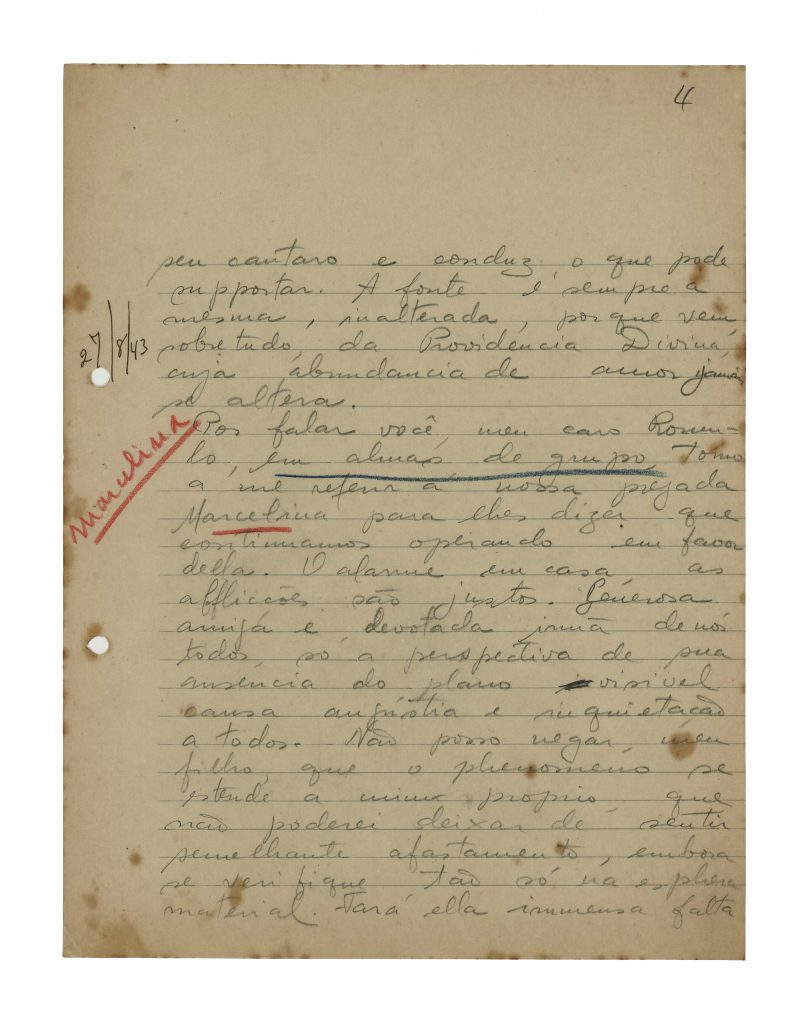 4
seu cantaro e conduz o que pode
supportar. A fonte é sempre a
mesma, inalterada, porque vem,
sobretudo, da Providencia Divina,
cuja abundancia de amor jamais
se altera.
27/8/43
Por falar você, meu caro Romu-
lo, em almas de grupo, torno
a me referir á nossa prezada
Marcelina
Marcelina para lhes dizer que
continuamos operando em favor
della. O alarme em casa as
afflicções são justos. Generosa
amiga e devotada irmã de nós
todos, só a perspectiva de sua
ausencia do plano visivel
causa angústia e inquietação
a todos. Não posso negar, meu
filho, que o phenomeno se
estende a mim proprio, que
não poderei deixar de sentir
semelhante afastamento, embora
se verifique tão só na esphera
material. Fará ella immensa falta